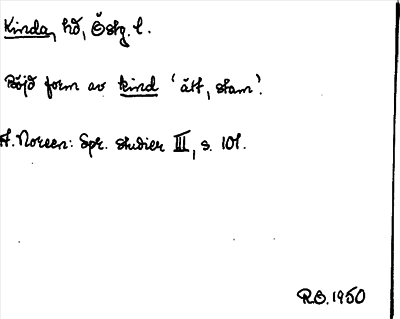 Kinda, hd, Östg. l.
Böjd form av kind 'ätt, stam'.
A. Noreen: Spr. studier III, s. 101.
R.O. 1950